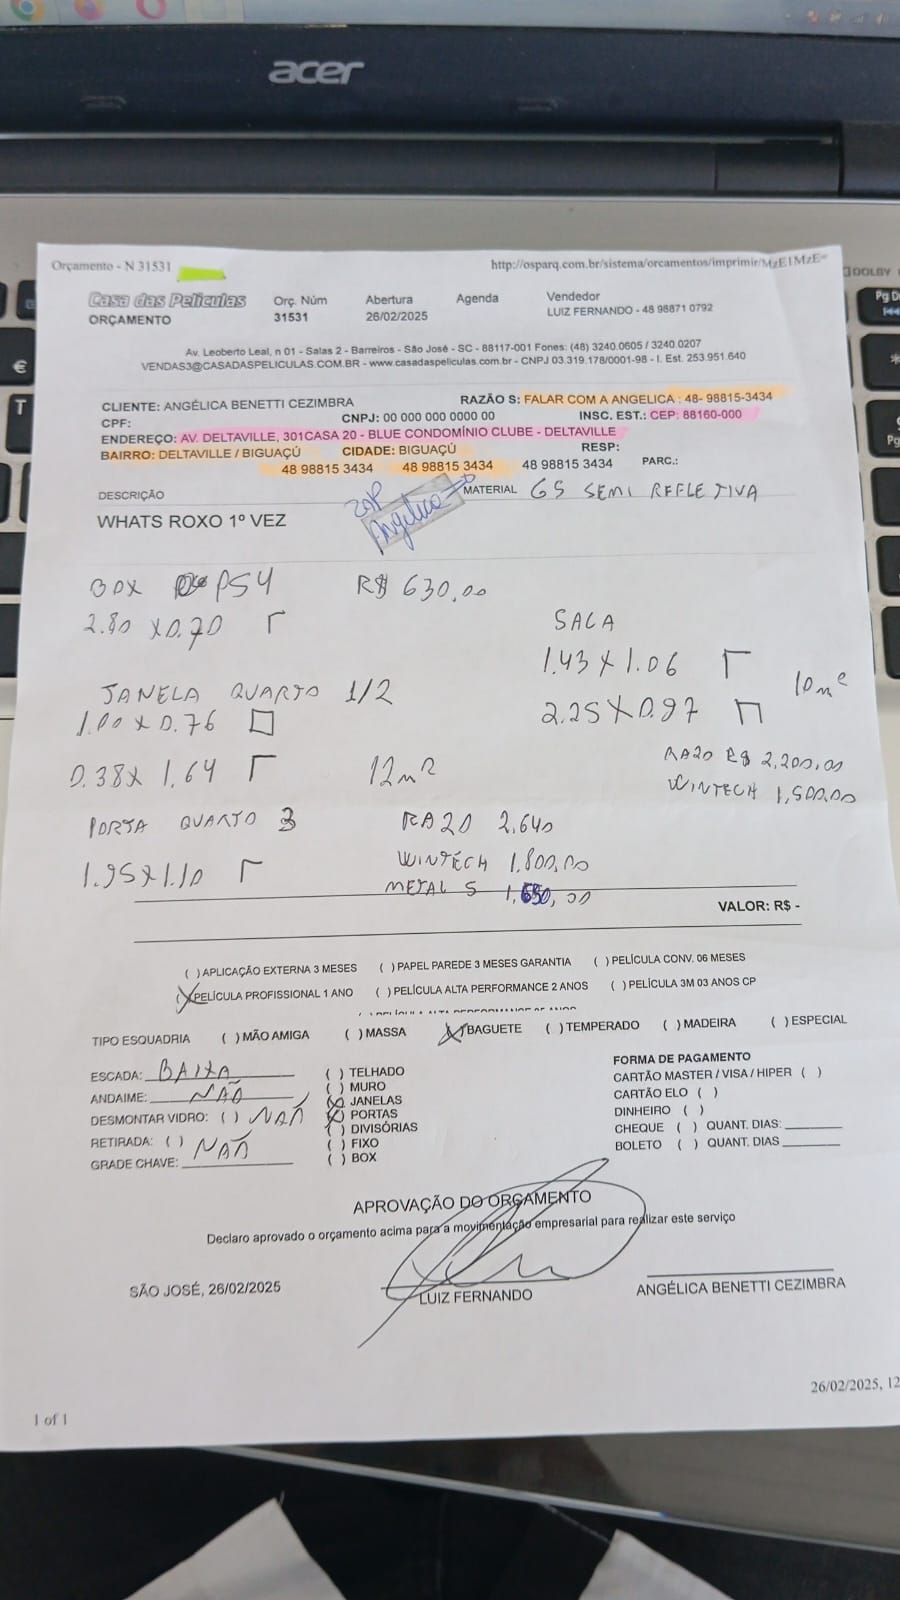 acer
DOLBY
Pg D
Pg
€
T
Orçamento - N 31531
http://osparq.com.br/sistema/orcamentos/imprimir/MzE1MzE=
Casa das Películas
ORÇAMENTO
Orç. Núm
31531
Abertura
26/02/2025
Agenda
Vendedor
LUIZ FERNANDO - 48 98871 0792
Av. Leoberto Leal, n 01 - Salas 2 - Barreiros - São José - SC - 88117-001 Fones: (48) 3240.0605 / 3240.0207
VENDAS3@CASADASPELICULAS.COM.BR - www.casadaspeliculas.com.br - CNPJ 03.319.178/0001-98 - I. Est. 253.951.640
CLIENTE: ANGÉLICA BENETTI CEZIMBRA RAZÃO S: FALAR COM A ANGELICA : 48- 98815-3434
CPF: CNPJ: 00 000 000 0000 00 INSC. EST.: CEP: 88160-000
ENDEREÇO: AV. DELTAVILLE, 301CASA 20 - BLUE CONDOMÍNIO CLUBE - DELTAVILLE
BAIRRO: DELTAVILLE / BIGUAÇÚ CIDADE: BIGUAÇÚ RESP:
48 98815 3434 48 98815 3434 48 98815 3434 PARC.:
DESCRIÇÃO
ZAP
Angélica
MATERIAL G5 SEMI REFLETIVA
WHATS ROXO 1º VEZ
BOX PS4 R$ 630,00
2.80 X 0.70
SALA
1.43 X 1.06
10m²
JANELA QUARTO 1/2
1.00 X 0.76
2.25 X 0.97
0.38 X 1.64
12m²
RA20 R$ 2,200,00
WINTECH 1,500,00
PORTA QUARTO 3
RA20 2,640
1.95 X 1.10
WINTECH 1,800,00
METAL 5 1,650,00
VALOR: R$ -
( ) APLICAÇÃO EXTERNA 3 MESES ( ) PAPEL PAREDE 3 MESES GARANTIA ( ) PELÍCULA CONV. 06 MESES
(X) PELÍCULA PROFISSIONAL 1 ANO ( ) PELÍCULA ALTA PERFORMANCE 2 ANOS ( ) PELÍCULA 3M 03 ANOS CP
TIPO ESQUADRIA ( ) MÃO AMIGA ( ) MASSA (X) BAGUETE ( ) TEMPERADO ( ) MADEIRA ( ) ESPECIAL
ESCADA: BAIXA
ANDAIME: NÃO
DESMONTAR VIDRO: ( ) NÃO
RETIRADA: ( )
GRADE CHAVE: NÃO
( ) TELHADO
( ) MURO
(X) JANELAS
(X) PORTAS
( ) DIVISÓRIAS
( ) FIXO
( ) BOX
FORMA DE PAGAMENTO
CARTÃO MASTER / VISA / HIPER ( )
CARTÃO ELO ( )
DINHEIRO ( )
CHEQUE ( ) QUANT. DIAS:
BOLETO ( ) QUANT. DIAS
APROVAÇÃO DO ORÇAMENTO
Declaro aprovado o orçamento acima para a movimentação empresarial para realizar este serviço
SÃO JOSÉ, 26/02/2025
LUIZ FERNANDO
ANGÉLICA BENETTI CEZIMBRA
26/02/2025, 12
1 of 1